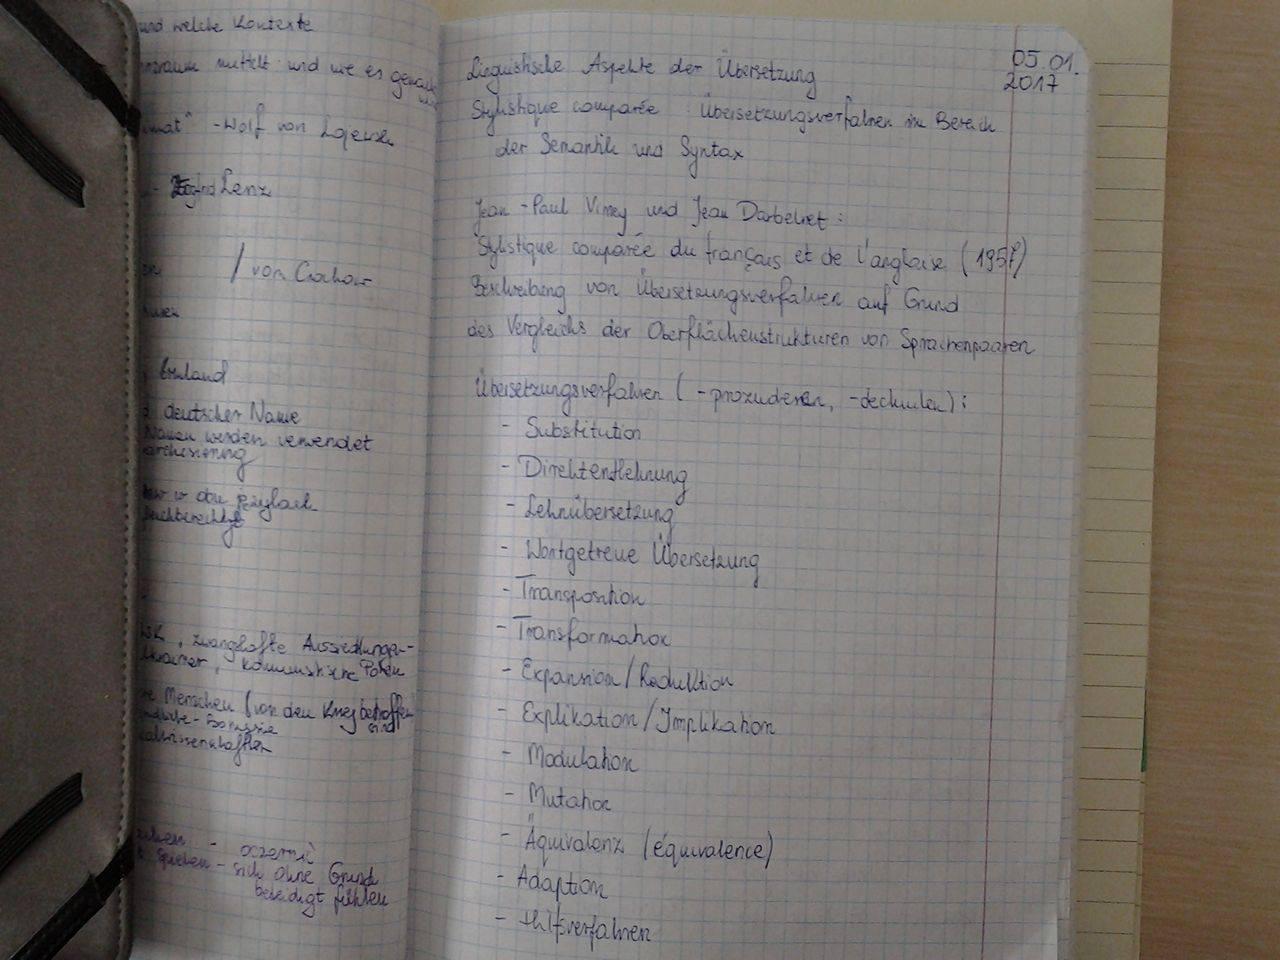 und welche Kontexte
mittelt und wie es
" - Wolf von Lojewski
Lenz
/ von Crockow
Ermland
deutscher Name
Namen werden verwendet
w obu językach
zwanghafte Aussiedlungen-
, kommunistische Polen
Menschen (von den Krieg betroffen
sind
- oczernić
spielen - sich ohne Grund
beleidigt fühlen
05.01.
2017
Linguistische Aspekte der Übersetzung
Stylistique comparée : Übersetzungsverfahren im Bereich
der Semantik und Syntax
Jean-Paul Viney und Jean Darbelnet :
Stylistique comparée du français et de l'anglaise (1957)
Beschreibung von Übersetzungsverfahren auf Grund
des Vergleichs der Oberflächenstrukturen von Sprachenpaaren
Übersetzungsverfahren (-prozuderen, -techniken) :
- Substitution
- Direktentlehnung
- Lehnübersetzung
- Wortgetreue Übersetzung
- Transposition
- Transformation
- Expansion/Reduktion
- Explikation/Implikation
- Modulation
- Mutation
- Äquivalenz (équivalence)
- Adaption
- Hilfsverfahren